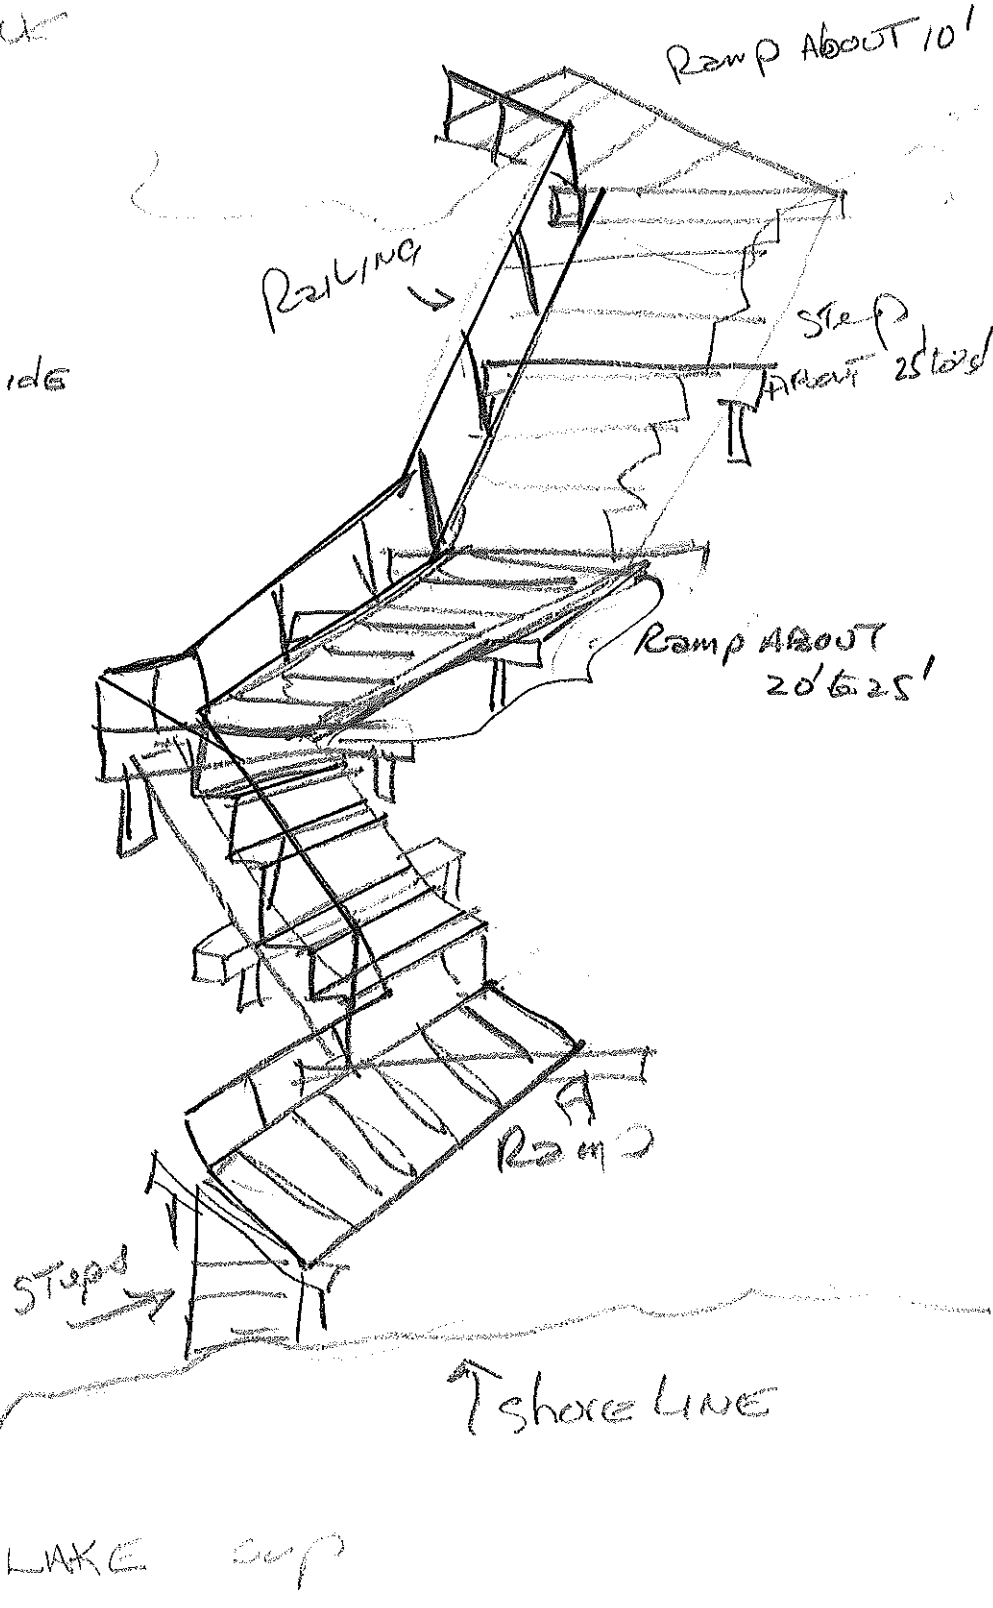 Ramp About 10'
RaiLING
Step
About 25'
ide
Ramp About
20' to 25'
Ramp
Steps
shore LINE
LAKE